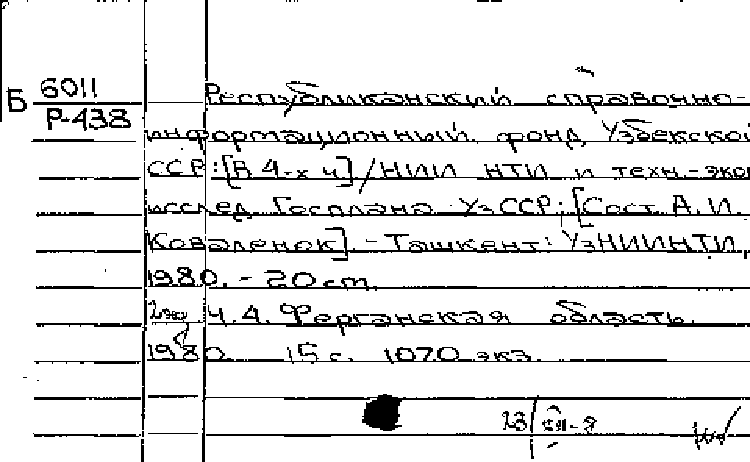 Б 6011
Р-438
Республиканский справочно-
информационный фонд Узбекской
ССР: [В 4-х ч] / НИИ НТИ и техн.-экон
исслед Госплана УзССР; [Сост. А. И.
Коваленок]. - Ташкент: УзНИИНТИ,
1980. - 20 cm.
Ч. 4. Ферганская область.
1980. 15 с. 1070 экз.